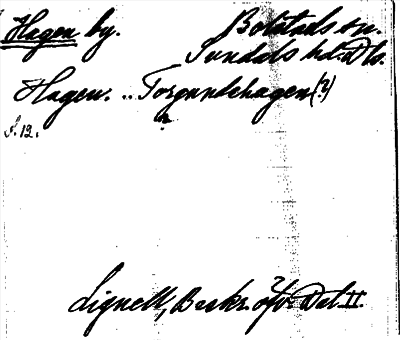 Hagen by. Bolstads sn.
Sundals hd. Dls.
Hagen. .. Torgundshagen (?)
?
S. 12.
Lignell, Beskr. öfv. Dal. II.